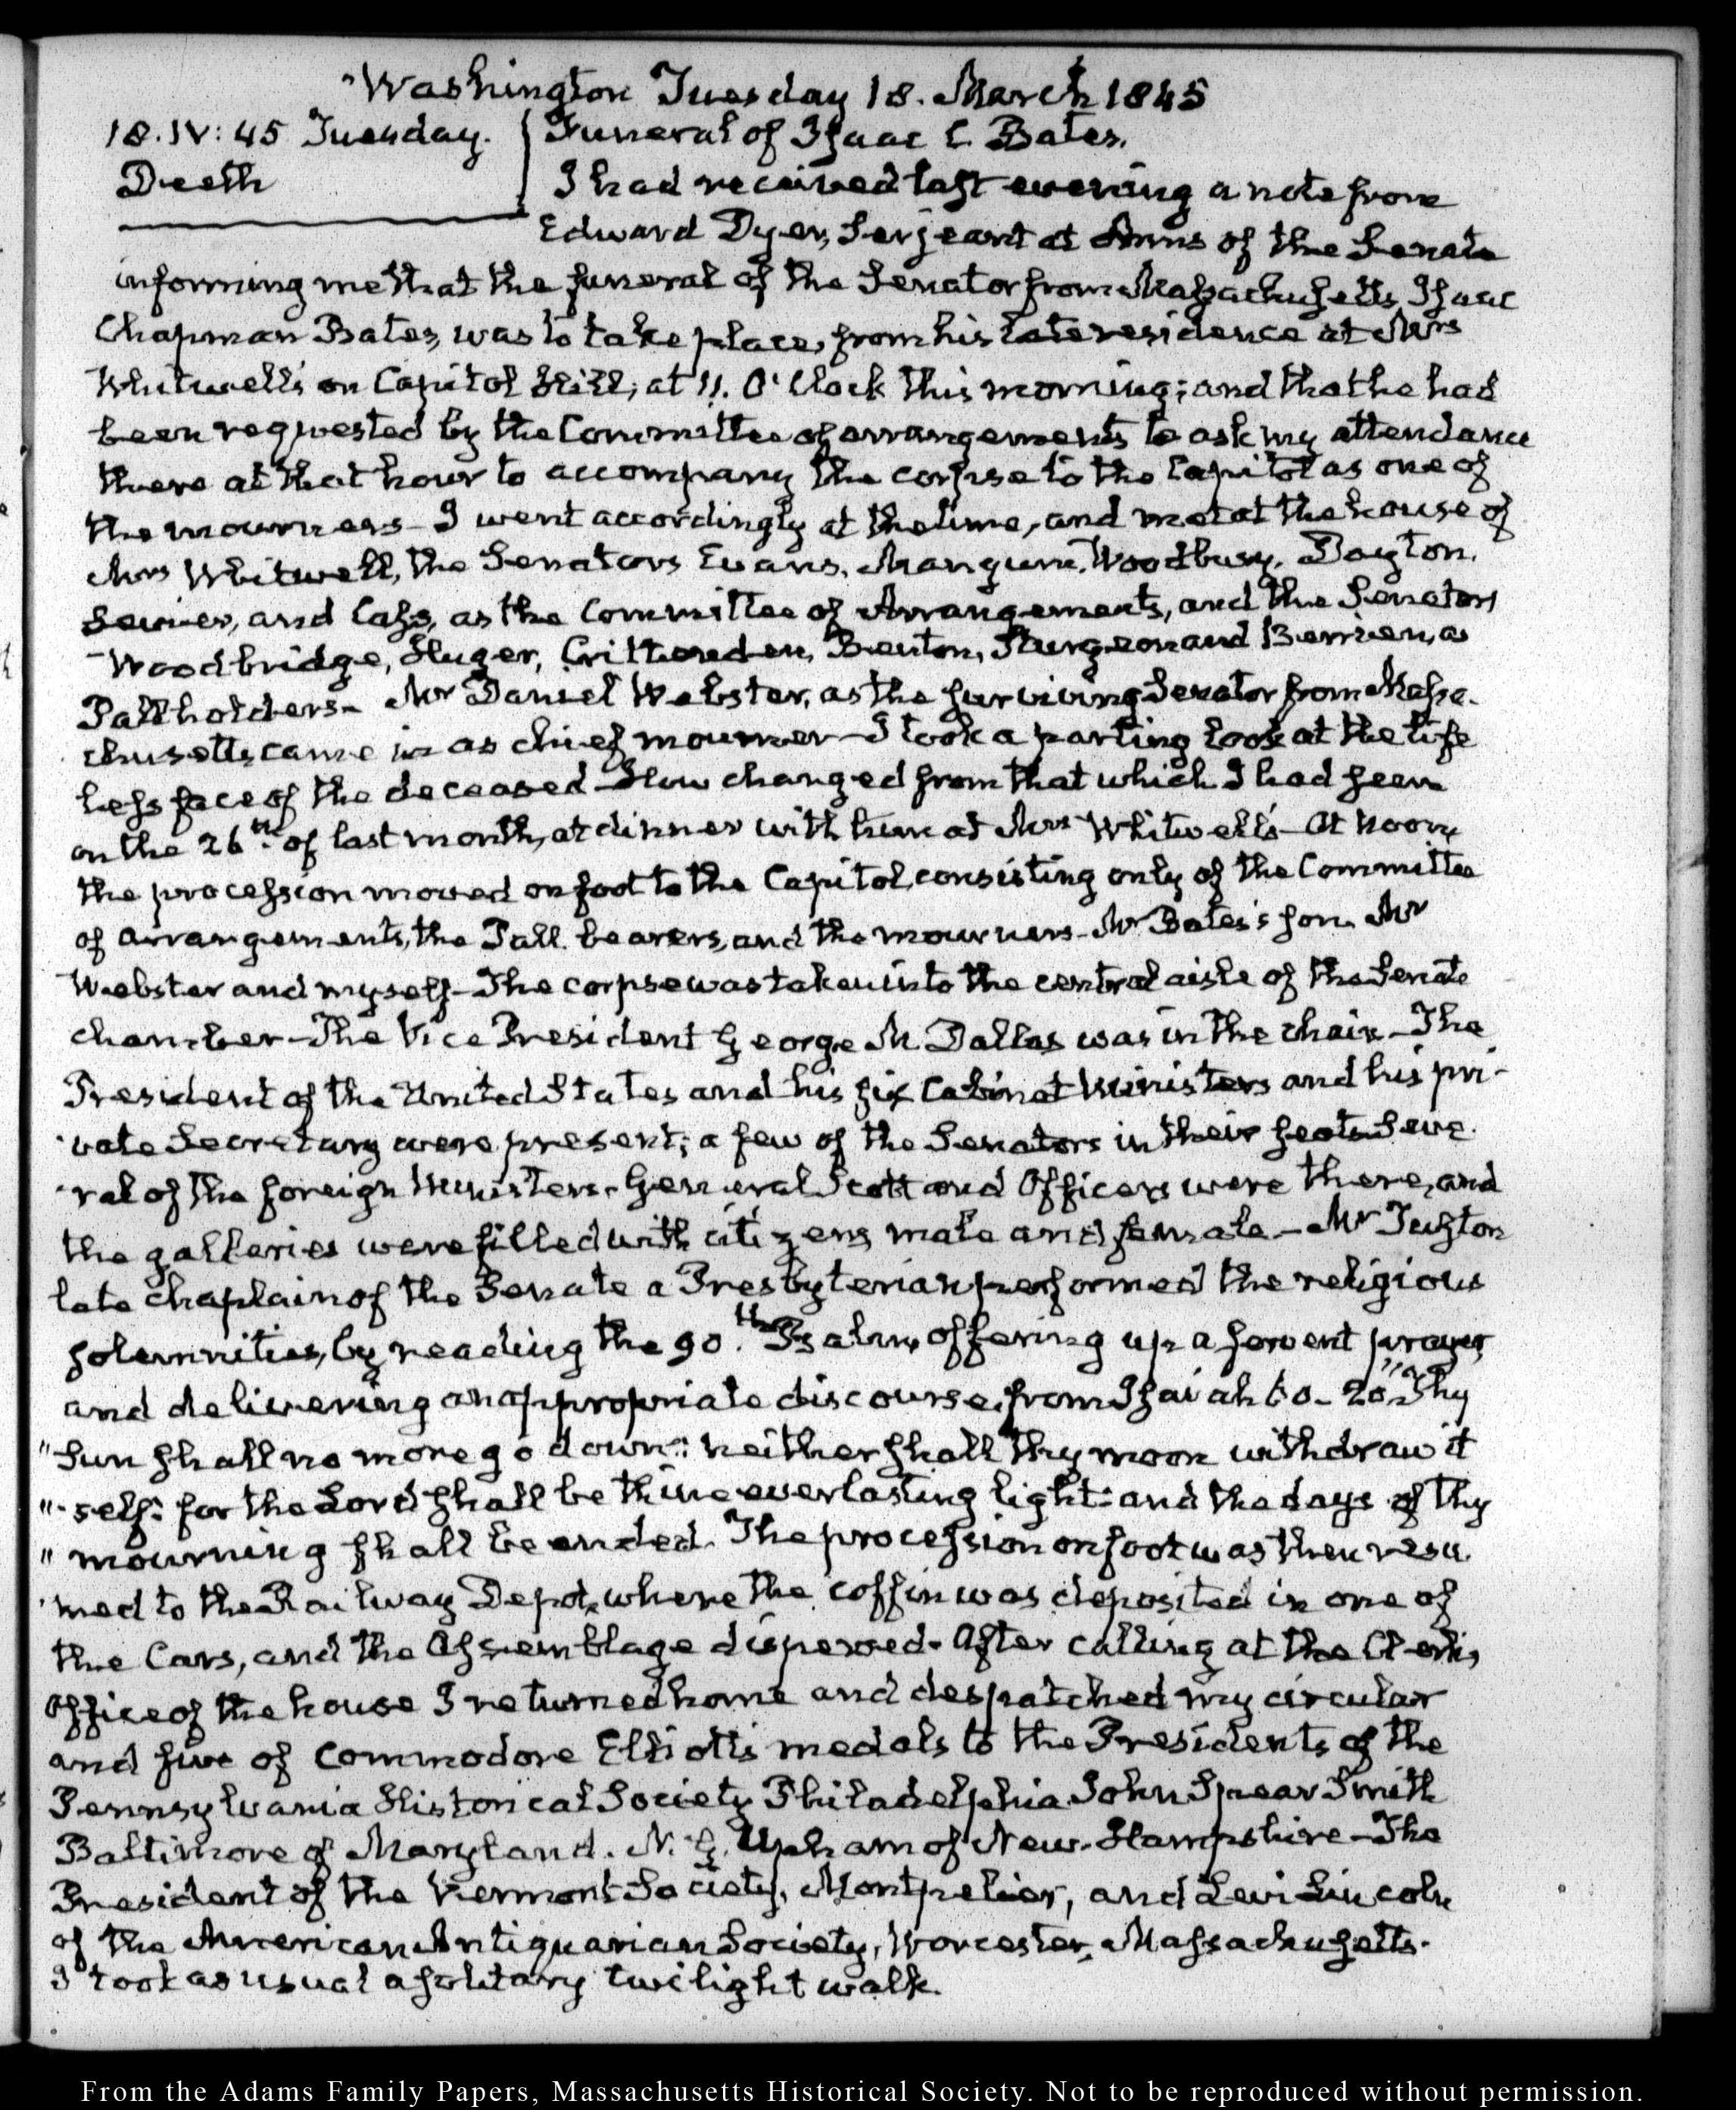 Washington Tuesday 18. March 1845
18. IV: 45 Tuesday. Funeral of Isaac C. Bates.
Death I had received last evening a note from
Edward Dyer, Serjeant at Arms of the Senate
informing me that the funeral of the Senator from Massachusetts, Isaac
Chapman Bates, was to take place, from his late residence at Mrs
Whitwell's on Capitol Hill, at 11. O'Clock this morning; and that he had
been requested by the Committee of arrangements to ask my attendance
there at that hour to accompany the corpse to the Capitol as one of
the mourners— I went accordingly at the time, and met at the house of
Mrs Whitwell, the Senators Evans, Mangum, Woodbury, Dayton,
Sevier, and Cass, as the Committee of Arrangements, and the Senators
Woodbridge, Huger, Crittenden, Benton, Sturgeon and Berrien, as
Pall holders— Mr Daniel Webster, as the surviving Senator from Massa-
chusetts came in as chief mourner— I took a parting look at the life
less face of the deceased— How changed from that which I had seen
on the 26th. of last month, at dinner with him at Mrs Whitwell's— At Noon,
the procession moved on foot to the Capitol, consisting only of the Committee
of arrangements, the Pall bearers, and the mourners— Mr Bates's son Mr
Webster and myself— The corpse was taken into the central aisle of the Senate
chamber— The Vice President George M. Dallas was in the chair— The
President of the United States and his six Cabinet Ministers and his pri-
vate Secretary were present; a few of the Senators in their seats. Seve-
ral of the foreign Ministers. General Scott and Officers were there, and
the galleries were filled with citizens male and female.— Mr Tuston
late Chaplain of the Senate a Presbyterian performed the religious
solemnities, by reading the 90.th Psalm, offering up a fervent prayer
and delivering an appropriate discourse, from Isaiah 60– 20, "Thy
"Sun shall no more go down: neither shall thy moon withdraw it
"self: for the Lord shall be thine everlasting light: and the days of thy
"mourning shall be ended. The procession on foot was then resu-
med to the Railway Depot, where the coffin was deposited in one of
the Cars, and the Assemblage dispersed. After calling at the Clerk's
Office of the house I returned home and despatched my circular
and five of Commodore Elliott's medals to the Presidents of the
Pennsylvania Historical Society Philadelphia. John Spear Smith
Baltimore of Maryland. N. G. Upham of New-Hampshire— The
President of the Vermont Society, Montpelier, and Levi Lincoln
of the American Antiquarian Society, Worcester, Massachusetts.
I took as usual a solitary twilight walk.
From the Adams Family Papers, Massachusetts Historical Society. Not to be reproduced without permission.